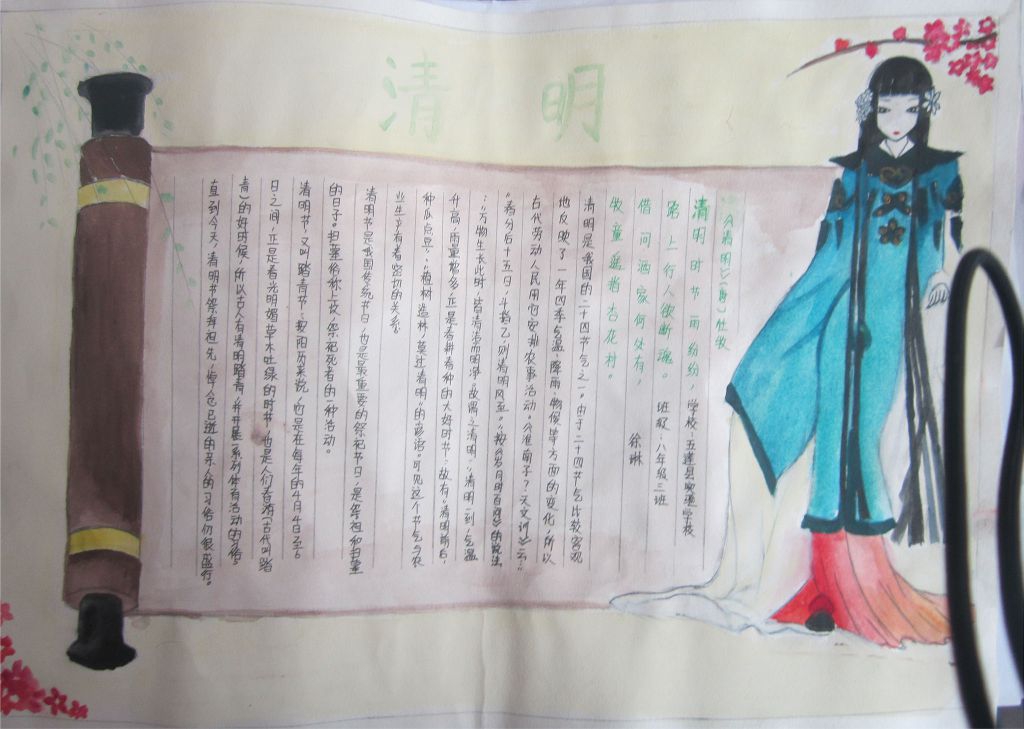 清 明
《清明》（唐）杜牧
清明时节雨纷纷，
路上行人欲断魂。
借问酒家何处有，
牧童遥指杏花村。
学校：五莲县实验学校
班级：八年级三班
徐琳
清明是我国的二十四节气之一。由于二十四节气比较客观
地反映了一年四季气温、降雨、物候等方面的变化，所以
古代劳动人民用它安排农事活动。《淮南子？天文训》云：“
春分后十五日，斗指乙，则清明风至。”按《岁时百问》的说法
：“万物生长此时，皆清洁而明净。故谓之清明。”清明一到，气温
升高，雨量增多，正是春耕春种的大好时节。故有“清明前后，
种瓜点豆”、“植树造林，莫过清明”的农谚。可见这个节气与农
业生产有着密切的关系。
清明节是我国传统节日，也是最重要的祭祀节日，是祭祖和扫墓
的日子。扫墓俗称上坟，祭祀死者的一种活动。
清明节，又叫踏青节，按阳历来说，它是在每年的4月4日至6
日之间，正是春光明媚草木吐绿的时节，也是人们春游（古代叫踏
青）的好时候，所以古人有清明踏青，并开展一系列体育活动的习俗。
直到今天，清明节祭拜祖先，悼念已逝的亲人的习俗仍很盛行。